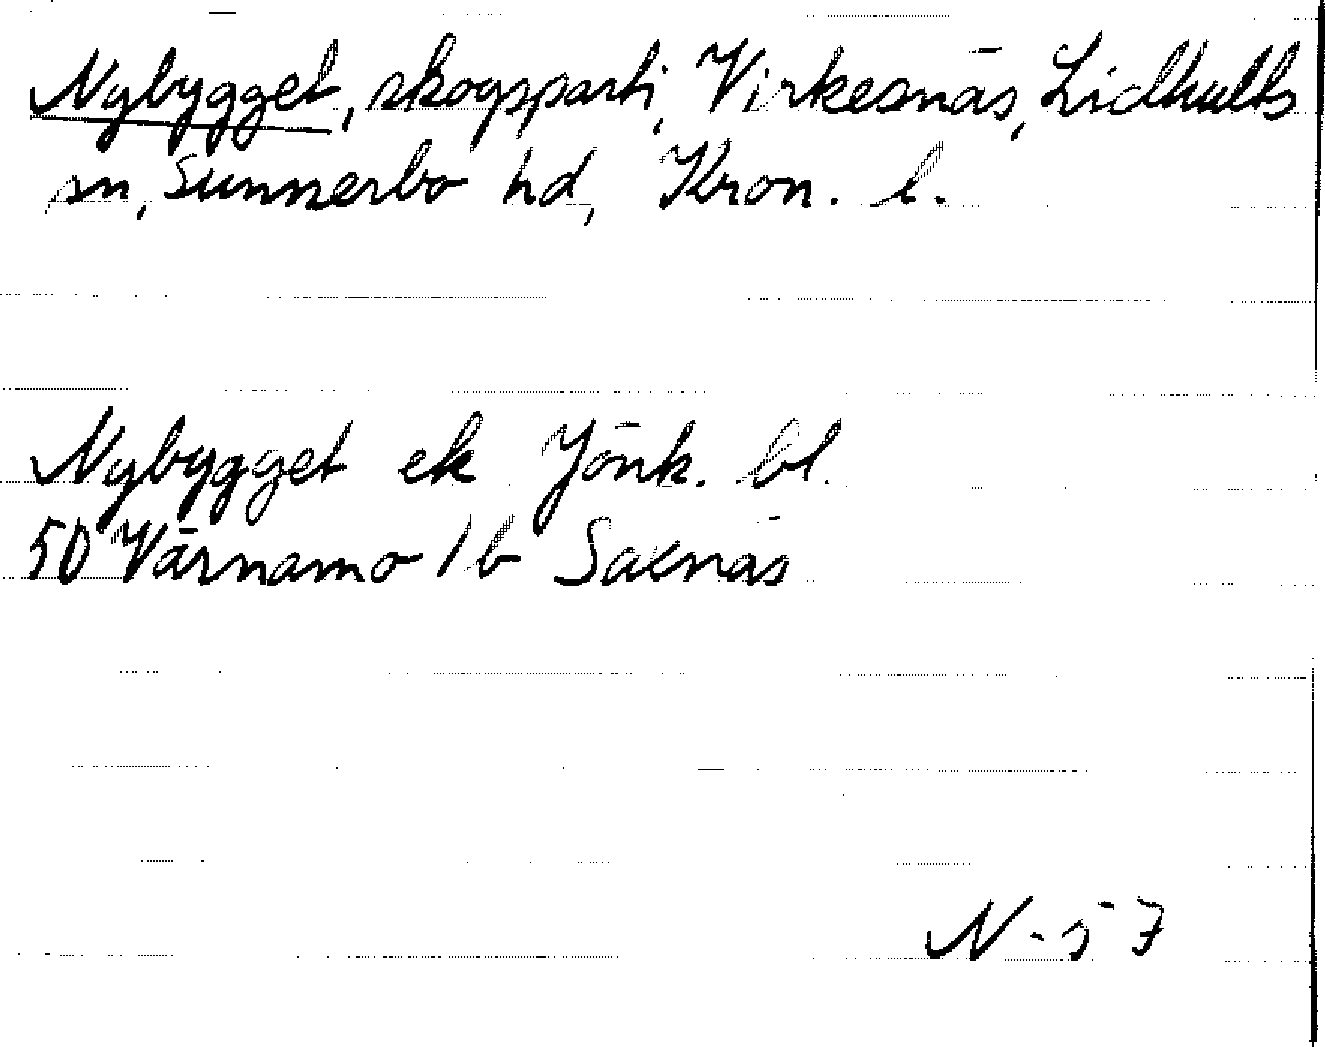 Nybygget, skogsparti, Virkesnäs, Lidhults
sn, Sunnerbo hd, Kron. l.
Nybygget ek Jönk. bl.
5D Värnamo 1b Saxnäs
N-57